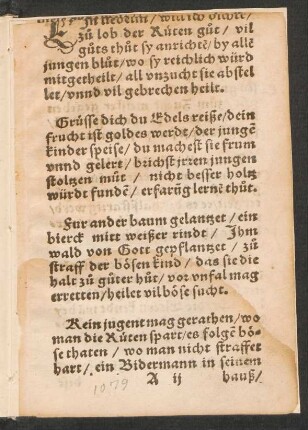 zů lob der Růten gůt / vil
gůts thůt sy anrichtē / by allē
jungen blůt / wo sy reichlich würd
mitgetheilt / all vnzucht sie abstel
let / vnnd vil gebrechen heilt.
Grüsse dich du Edels reiße / dein
frucht ist goldes werdt / der jungē
kinder speise / du machest sie frum
vnnd gelert / brichst jrren jungen
stoltzen můt / nicht besser holtz
würdt fundē / erfarūg lernē thůt.
Fur ander baum gelantzet / ein
bierck mitt weißer rindt / Jhm
wald von Gott gepflantzet / zů
straff der bösen kind / das sie die
halt zů gůter hůt / vor vnfal mag
erretten / heilet vil böse sucht.
Kein jugent mag gerathen / wo
man die Růten spart / es folgē bö-
se thaten / wo man nicht straffet
hart / ein Bidermann in seinem
A ij hauß /
1079